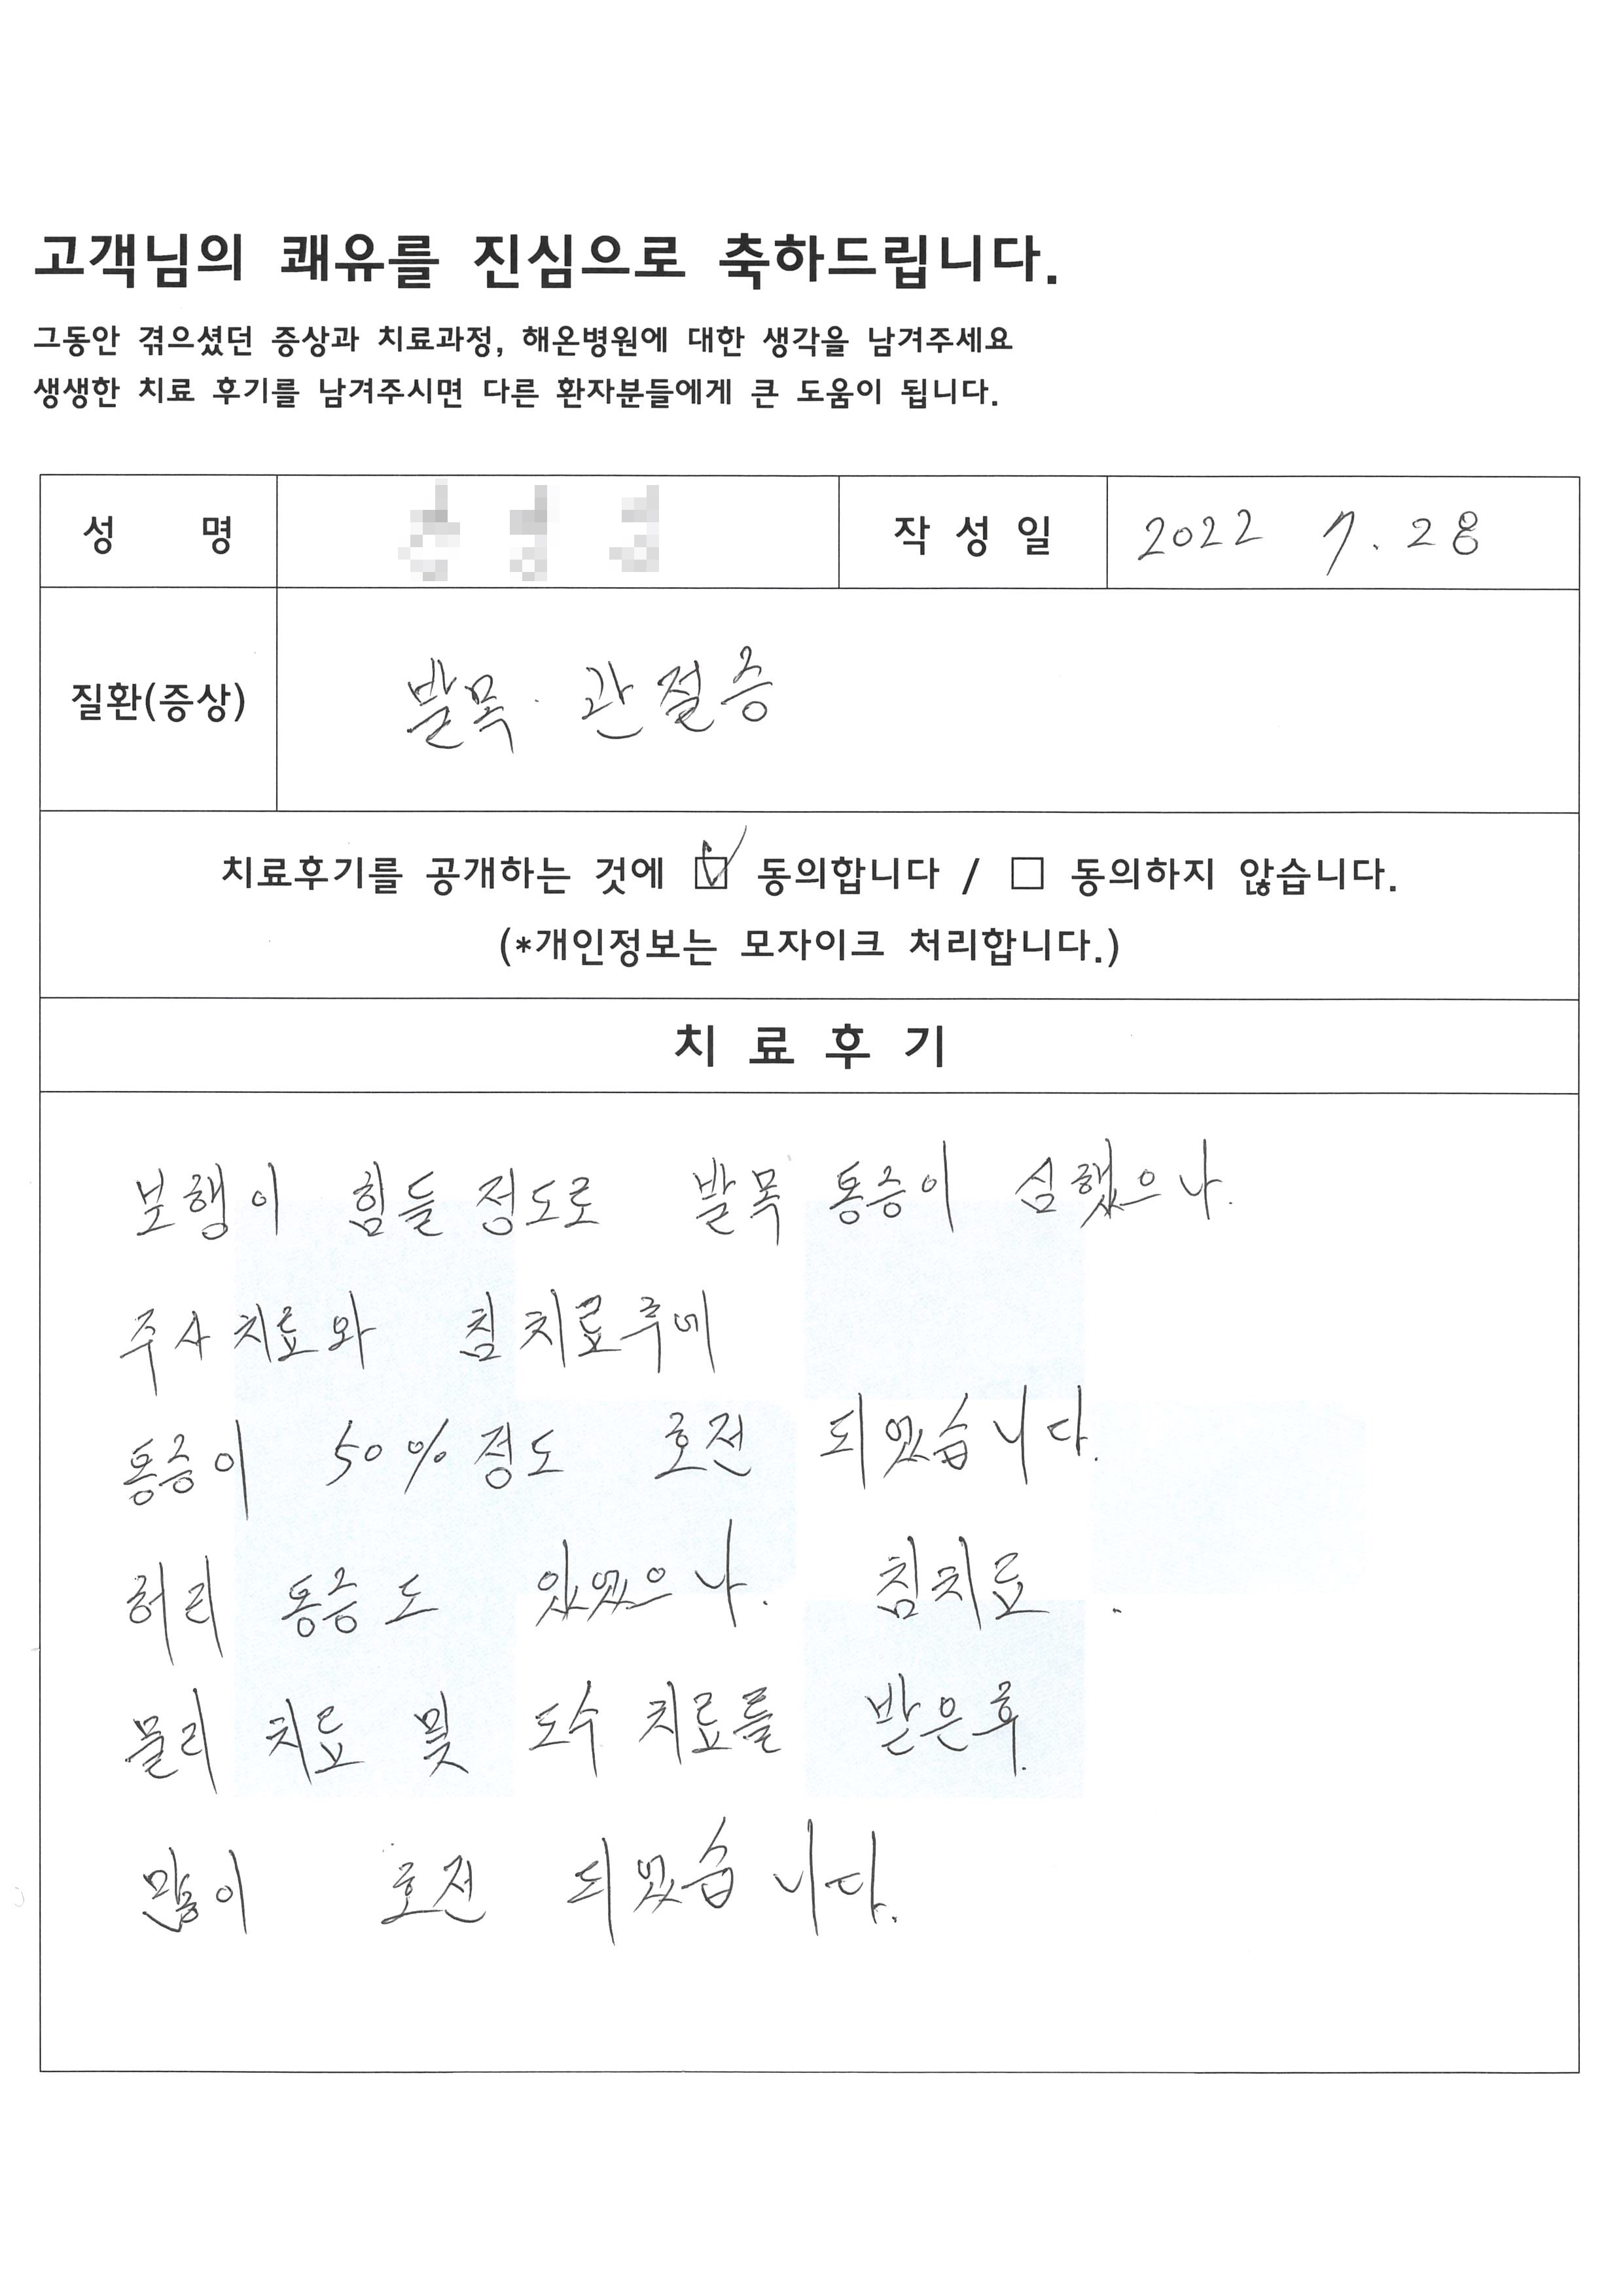 고객님의 쾌유를 진심으로 축하드립니다.
그동안 겪으셨던 증상과 치료과정, 해온병원에 대한 생각을 남겨주세요
생생한 치료 후기를 남겨주시면 다른 환자분들에게 큰 도움이 됩니다.
성 명 작 성 일 2022 7. 28
질환(증상) 발목. 관절증
치료후기를 공개하는 것에 ☑ 동의합니다 / □ 동의하지 않습니다.
(*개인정보는 모자이크 처리합니다.)
치 료 후 기
보행이 힘들 정도로 발목 통증이 심했으나.
주사치료와 침치료후에
통증이 50% 정도 호전 되었습니다.
허리 통증도 있었으나. 침치료.
물리 치료 및 도수 치료를 받은후.
많이 호전 되었습니다.